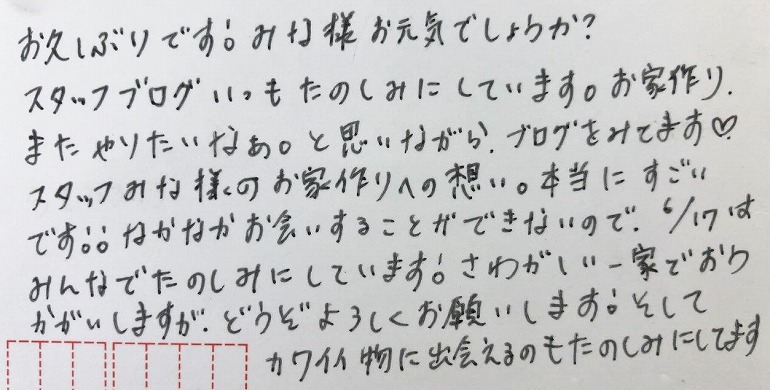 お久しぶりです! みな様お元気でしょうか?
スタッフブログいつもたのしみにしています。お家作り、
またやりたいなぁ。と思いながら、ブログをみてます♡
スタッフみな様のお家作りへの想い。本当にすごい
です!! なかなかお会いすることができないので、6/17は
みんなでたのしみにしています! さわがしい一家でおう
かがいしますが、どうぞよろしくお願いします! そして
カワイイ物に出会えるのもたのしみにしてます